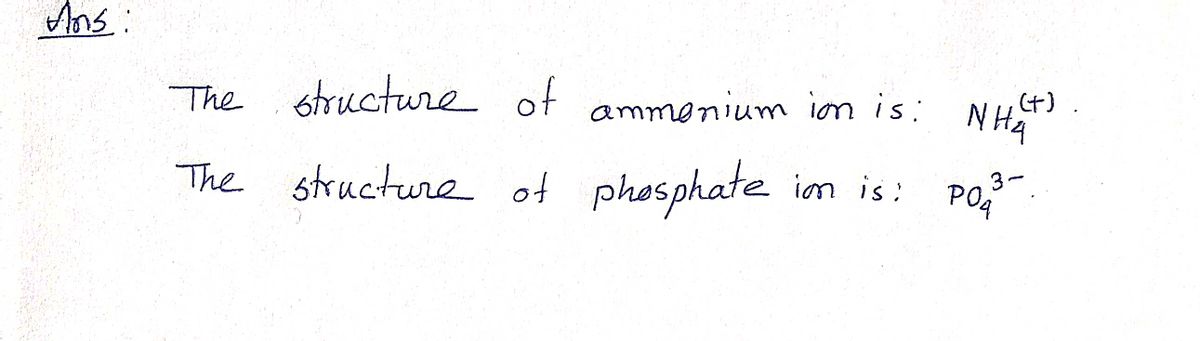 Ans:
The structure of ammonium ion is: NH₄⁽⁺⁾.
The structure of phosphate ion is: PO₄³⁻.